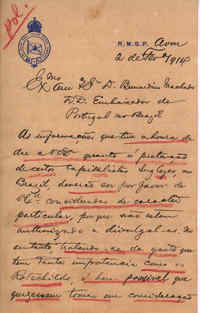 R.M.S.P. Avon
2 de 1914
Exmo Sr. D. Bernardino Machado
D.D. Embaixador de
Portugal no Brazil
As informações que tive a honra de
dar a VExª quanto á pretenção
de certos Capitalistas Inglezes, no
Brazil, deverão ser por favor de
VExª consideradas de caracter
particular, porque não estou
authorizado a divulgal-as. No
entanto tratando-se de gente que
tem tanta importancia como os
Rothschilds, é bem possivel que
quizessem tomar em consideração